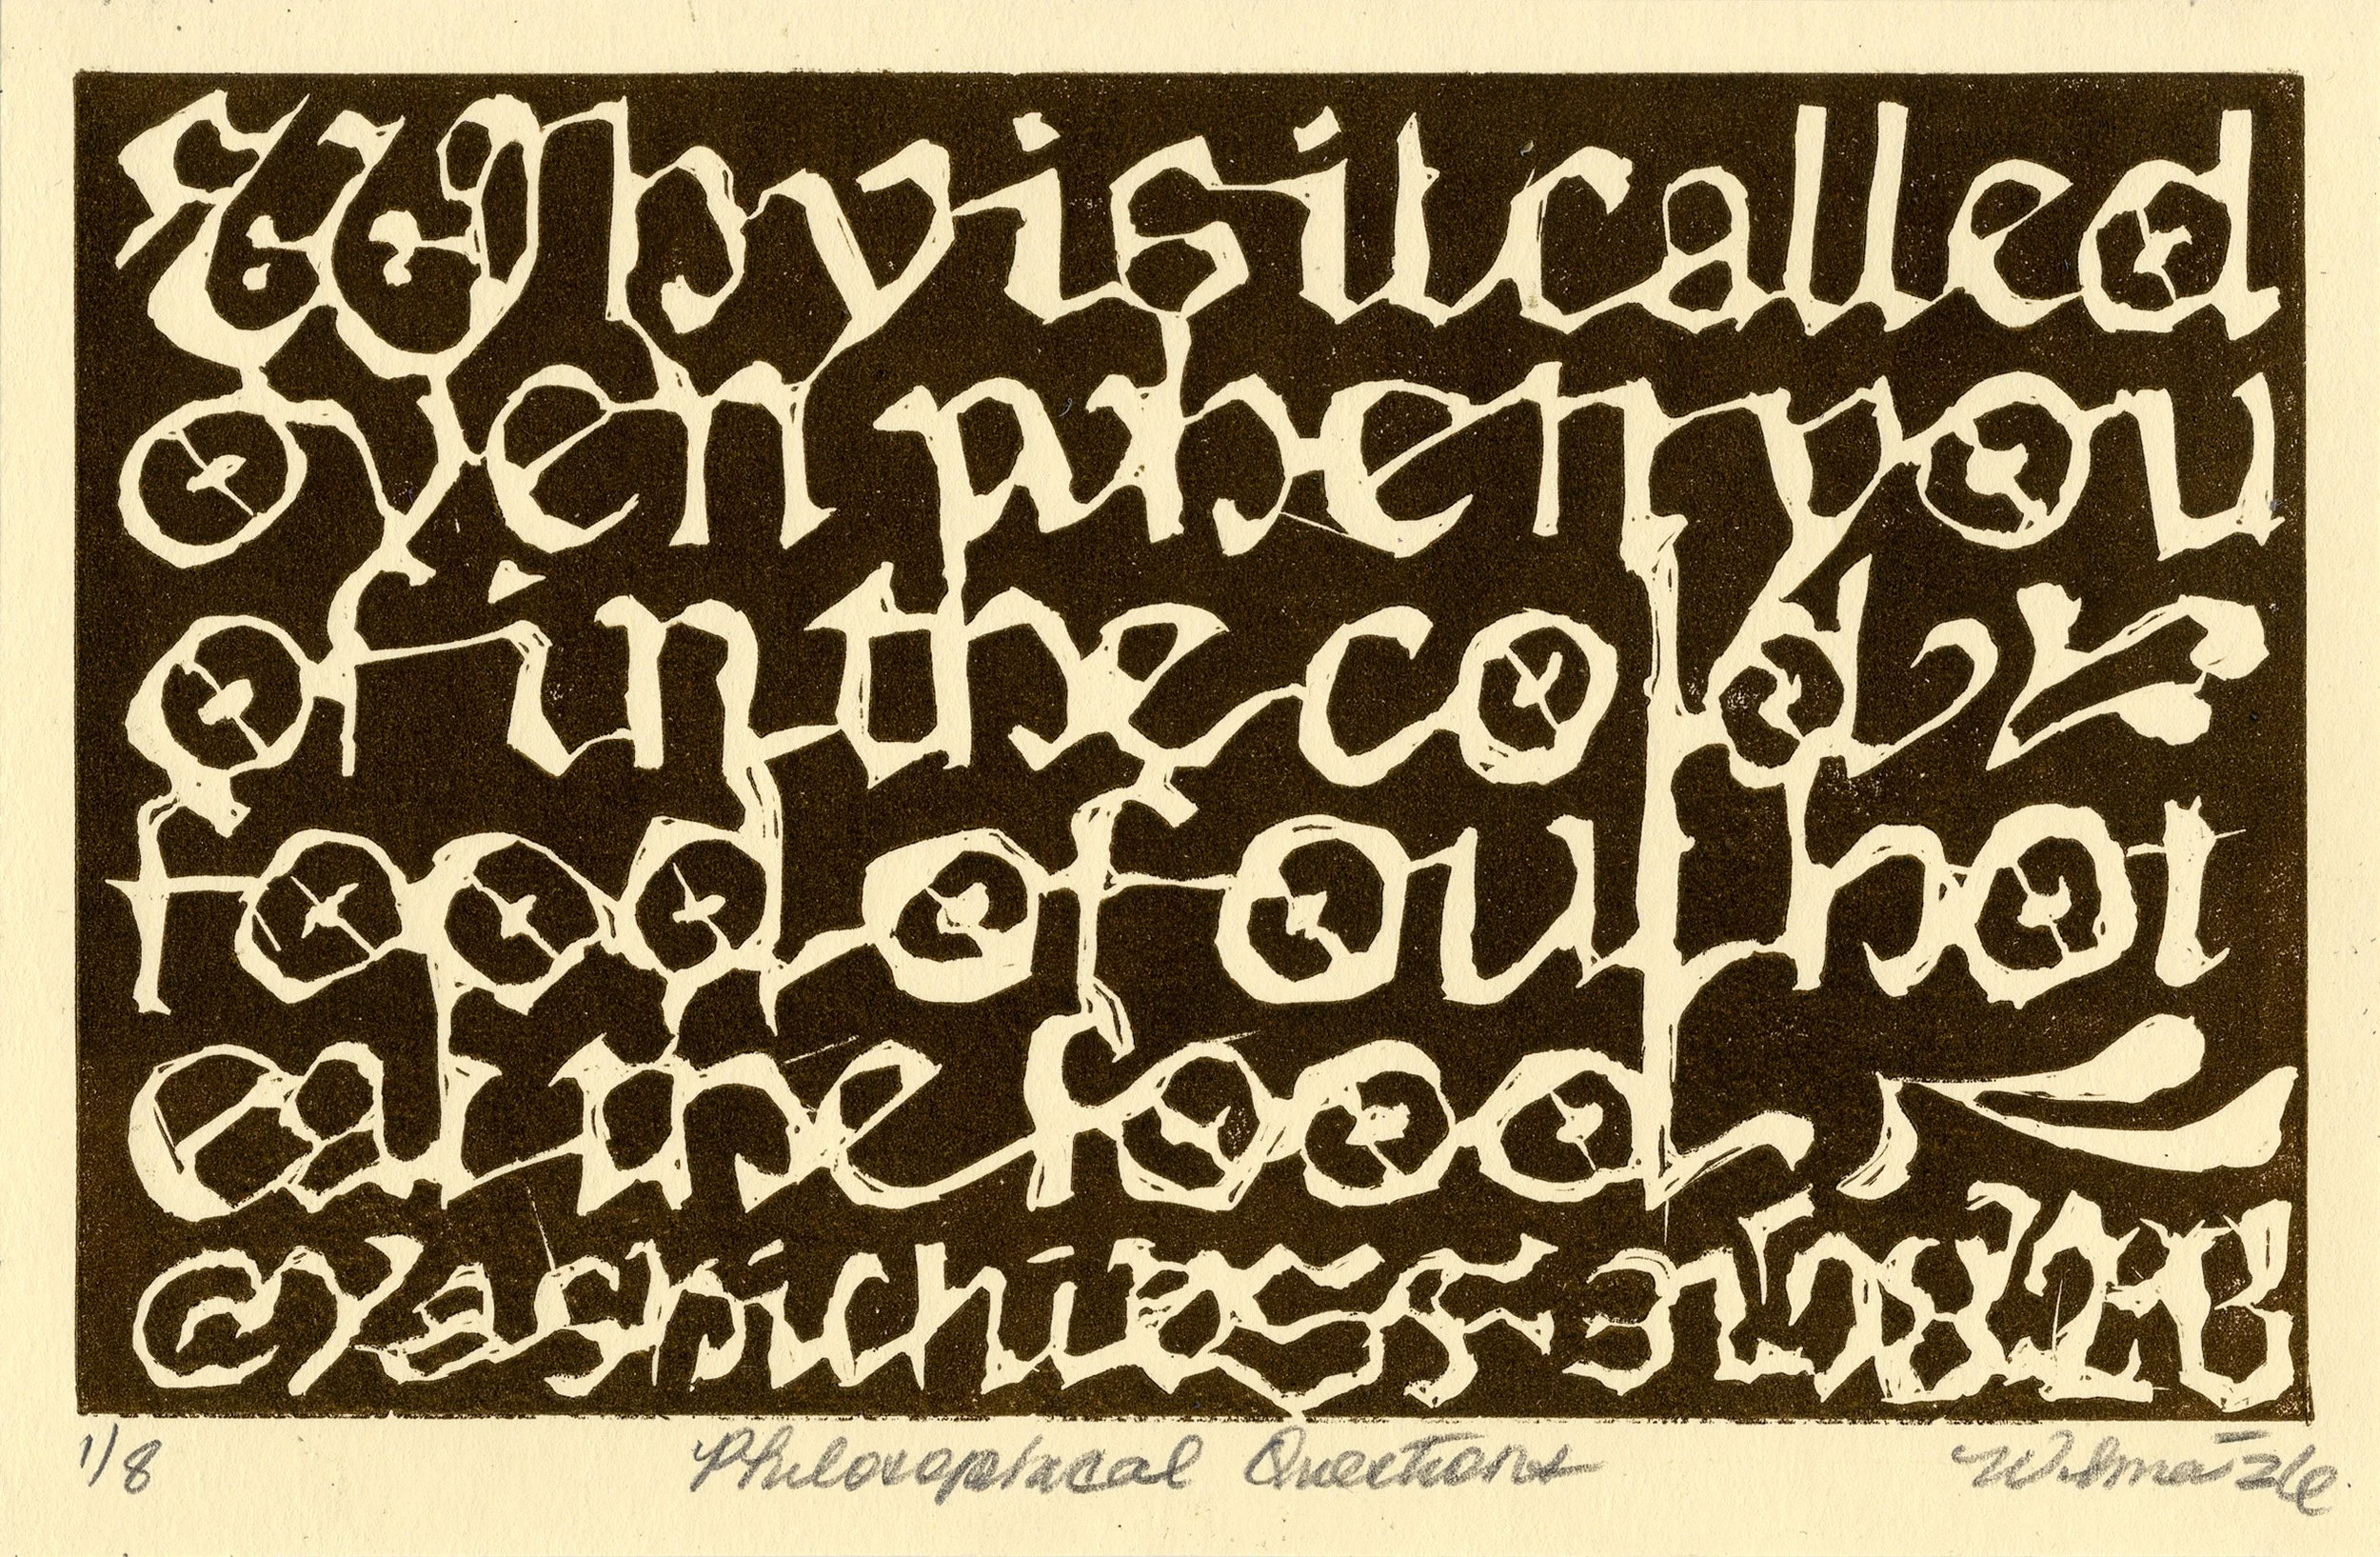 Why is it called
oven when you
of in the cold
food of out hot
eat the food
1/8 Philosophical Questions